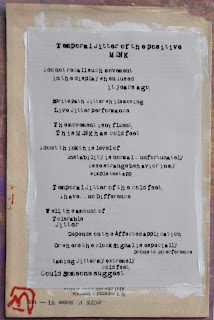 Temporal Jitter of the positive
MINK
I do not recall such movement
in the display when I used
it years ago
Live Jitter performance
The movement isn't fluent
This MINK has cold feet
I don t think this level of
instability is normal. unfortunately
I see strange behavior in my
simple test app
Temporal Jitter of the cold feet
I have . no Difference
Well, the amount of
Tolerable
Jitter
Depens on the Affected application
Or where the clock signal is especially
prone to interference
taming Jittermy extremely
cold feet,
Could someone suggest